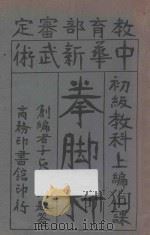 教育部審定
中華新武術
初級教科上編術課
拳脚
創編者
商務印書館印行